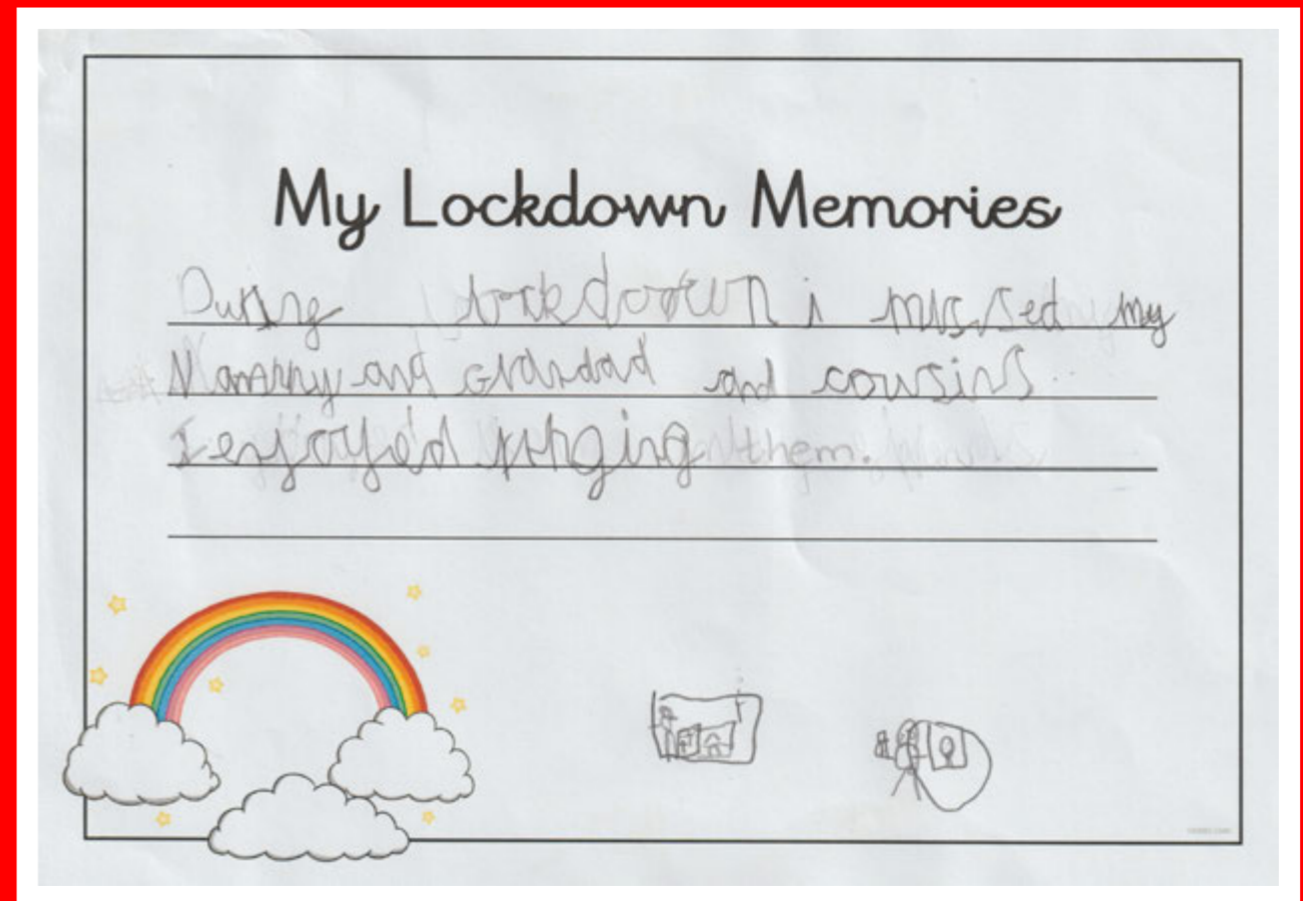 My Lockdown Memories
During lockdown i missed my
Nanny and Grandad and cousins
I enjoyed ringing them.